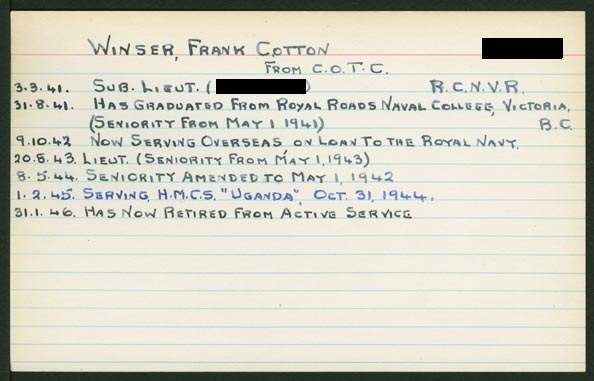 WINSER, FRANK COTTON
FROM C.O.T.C.
3.3.41. SUB. LIEUT. ( ) R.C.N.V.R.
31.8.41. HAS GRADUATED FROM ROYAL ROADS NAVAL COLLEGE, VICTORIA,
(SENIORITY FROM MAY 1 1941) B.C.
9.10.42 NOW SERVING OVERSEAS, ON LOAN TO THE ROYAL NAVY.
20.8.43. LIEUT. (SENIORITY FROM MAY 1, 1943)
8.5.44. SENIORITY AMENDED TO MAY 1, 1942
1.2.45. SERVING, H.M.C.S. "UGANDA", OCT. 31, 1944.
31.1.46. HAS NOW RETIRED FROM ACTIVE SERVICE